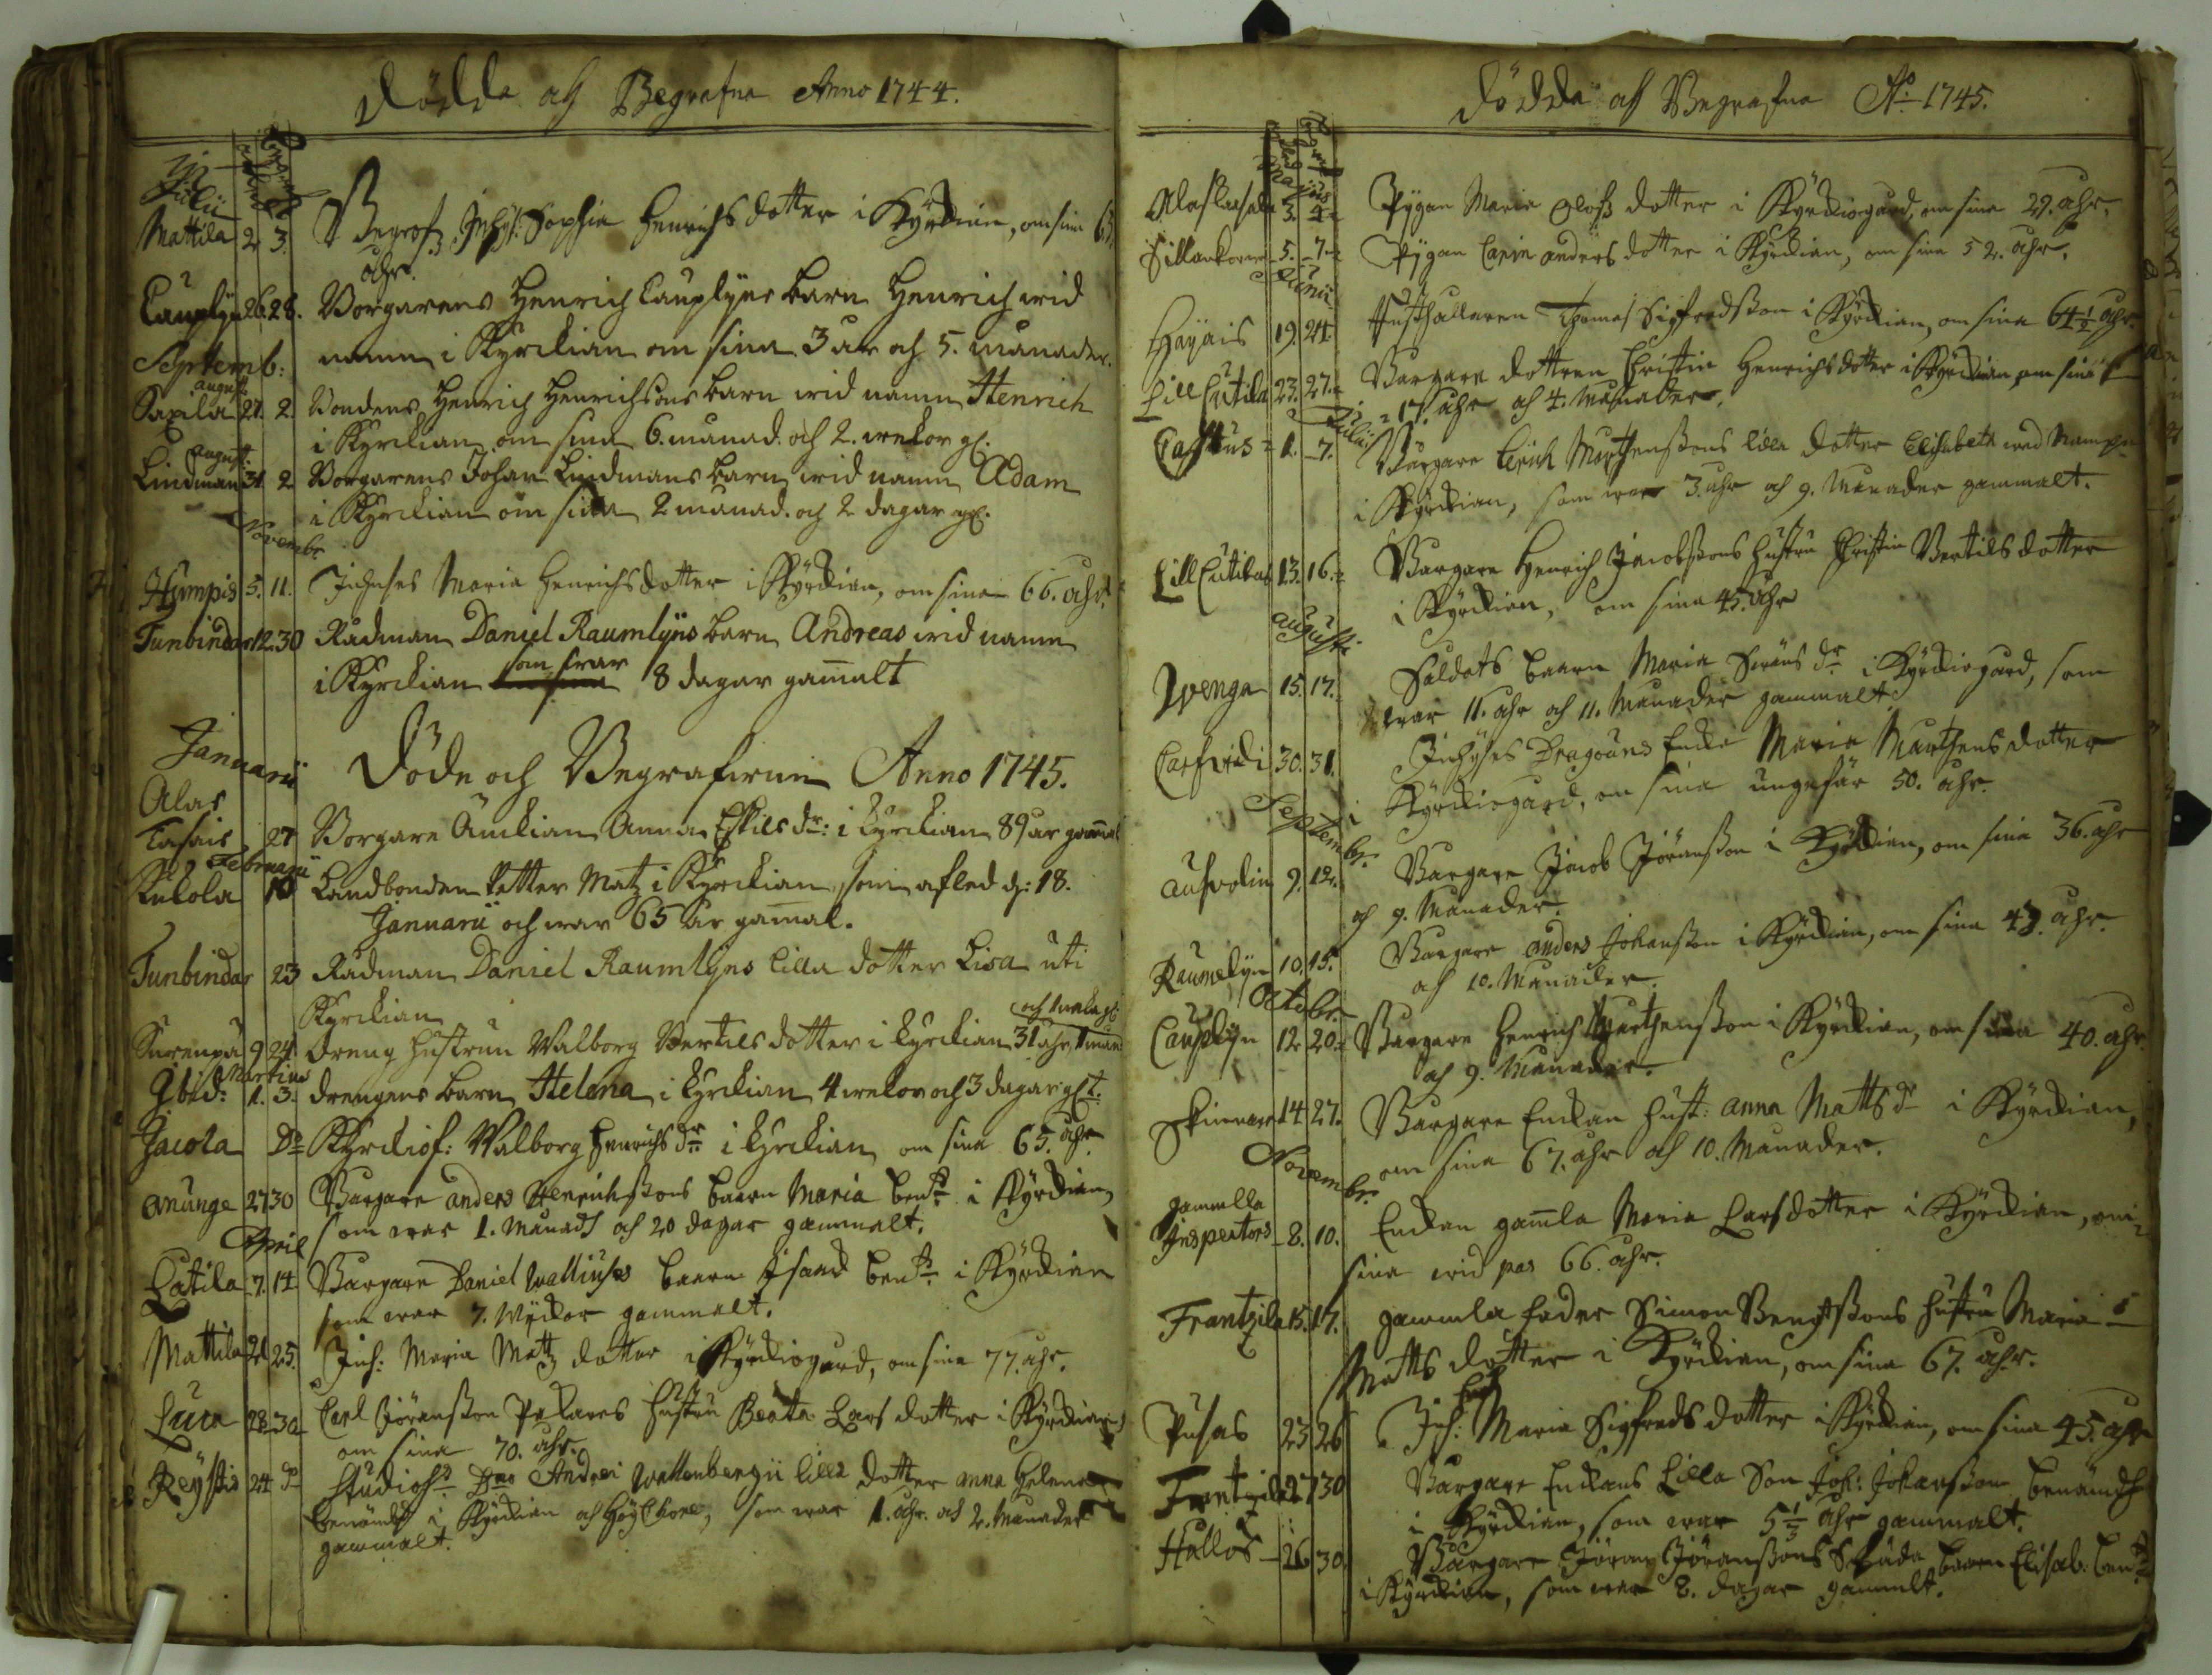 Dödde och Begrafne Anno 1744.
Julii
Mattila 2 3. Begrofz Inhys: Sophia Henrichs dotter i Kyrckian, om sina 63.
ahr.
Cauplyn 26. 28. Borgarens Henrich Cauplyns barn Henrich wid
namn i Kyrckian om sina 3 år och 5. månader.
Septemb:
august
Saxila 27. 2. Bondens Henrich Henrichsons barn wid namn Henrich
i Kyrckian om sina 6. månad. och 2. weckor gl.
august.
Lindman 31 2 Borgarens Johan Lindmans barn wid namn Adam
i Kyrckian om sina 2 månad. och 2 dagar gl.
Novembr.
Humpis 5. 11. Inhyses Maria Henrichsdotter i Kyrckian, om sina 66. ahr.
Tunbindar 12. 30 Rådman Daniel Raumlyns barn Andreas wid namn
i Kyrckian som war 8 dagar gamalt
Januarii
Döde och Begrafne Anno 1745.
Alas
Tasais 27 Borgare Änckian Anna Eskils dr: i Kyrckian 89 år gamal
Februarii
Kukola 10 Landbonden Petter Matz i Kyrckian, som afled d: 18.
Januarii och war 65 år gamal.
Tunbindar 23 Rådman Daniel Raumlyns lilla dotter Lisa uti
Kyrckian
och 1 wecka gl:
Surenpä 9 24. Dreng hustrun Walborg Bertils dotter i Kyrckian 31 ahr, 1 mån
Martius
Ibid: 1. 3. Drengens barn Helena i Kyrckian 4 weckor och 3 dagar glt.
Jacola Do Kyrckiof: Walborg Henrichs dr i Kyrckian om sina 65. ahr.
Anunge 27 30 Borgare Anders Henrichssons barn Maria bend i Kyrckian,
som war 1. Månadt och 20 dagar gammalt.
April
Cutila 7. 14. Borgare Daniel Walliuses barn Isaac bend i Kyrckian
som war 7. Wickor gammalt.
Mattila 21 25. Inh: Maria Matz dotter i Kyrckiogård, om sina 77. ahr.
Lura 28 30 Carl Jöransson hustru Beata Lars dotter i Kyrckian
om sina 70. ahr.
Reystis 24 do Studios. Dns Andreæ Wallenbergii lilla dotter Anna Helena
benämdt i Kyrckian och Högchoret, som war 1. ahr. och 2. Månader
gammalt.
Dödde och Begrafne Ao 1745.
Majus
3. 4. Pygan Maria Olofz dotter i Kyrckiogård, om sina 29. ahr.
5. 7. Pygan Carin Anders dotter i Kyrckian, om sina 52. ahr.
Junii
Hayais 19. 24. Husthållaren Thomas Sigfredsson i Kyrckian, om sina 64 1/2 ahr.
Lill Cutila 23. 27. Borgare dottren Christin Henrichsdotter i Kyrckian, om sina
17. ahr och 4. Månader.
Julii
Castus 1. 7. Borgare Erich Mårthenssons lilla dotter Elisabeth wid Namn
i Kyrckian, som war 3. ahr och 9. Månader gammalt.
Lill Cutilas 13. 16. Borgare Henrich Jacobssons hustru Christin Bertils dotter
i Kyrckian, om sina 45. ahr
Augusti
Wenga 15. 17. Soldats barn Maria dr i Kyrckiogård, som
war 11. ahr och 11. Månader gammalt.
Carfvidi 30. 31. Inhyses Dragouns Encka Maria Marthens dotter
i Kyrckiogård, om sina ungefär 50. ahr.
Septembr.
9. 12. Borgare Jacob Jöransson i Kyrckian, om sina 36. ahr
och 9. Månader.
Raumelyn 10. 15. Borgare Anders Johansson i Kyrckian, om sina 43. ahr.
och 10. Månader.
Octobr.
Cauplyn 12. 20. Borgare Henrich Mårthensson i Kyrckian, om sina 40. ahr.
och 9. Månader.
Skinnare 14 27. Borgare Enckan hust: Anna Matts dr i Kyrckian,
om sina 67. ahr och 10. Månader.
Novembr.
gammella
Inspectors 8. 10. Enckan gamla Maria Larsdotter i Kyrckian, om
sina wid pas 66. ahr.
Frantzila 15. 17. gammla fader Simon Bengtssons hustru Maria
Matts dotter i Kyrckian, om sina 67. ahr.
Pusas 23 26 Inh: Maria Sigfreds dotter i Kyrckian, om sina 45. ahr
Frantzila 27 30 Borgare Enckans lilla Son Joh: Johansson benämdh
i Kyrckian, som war 5 1/2 ahr gammalt.
Hullos 26 30. Borgare Jöran Jöranssons barn Elisab: bend
i Kyrckian, som war 8. dagar gammalt.